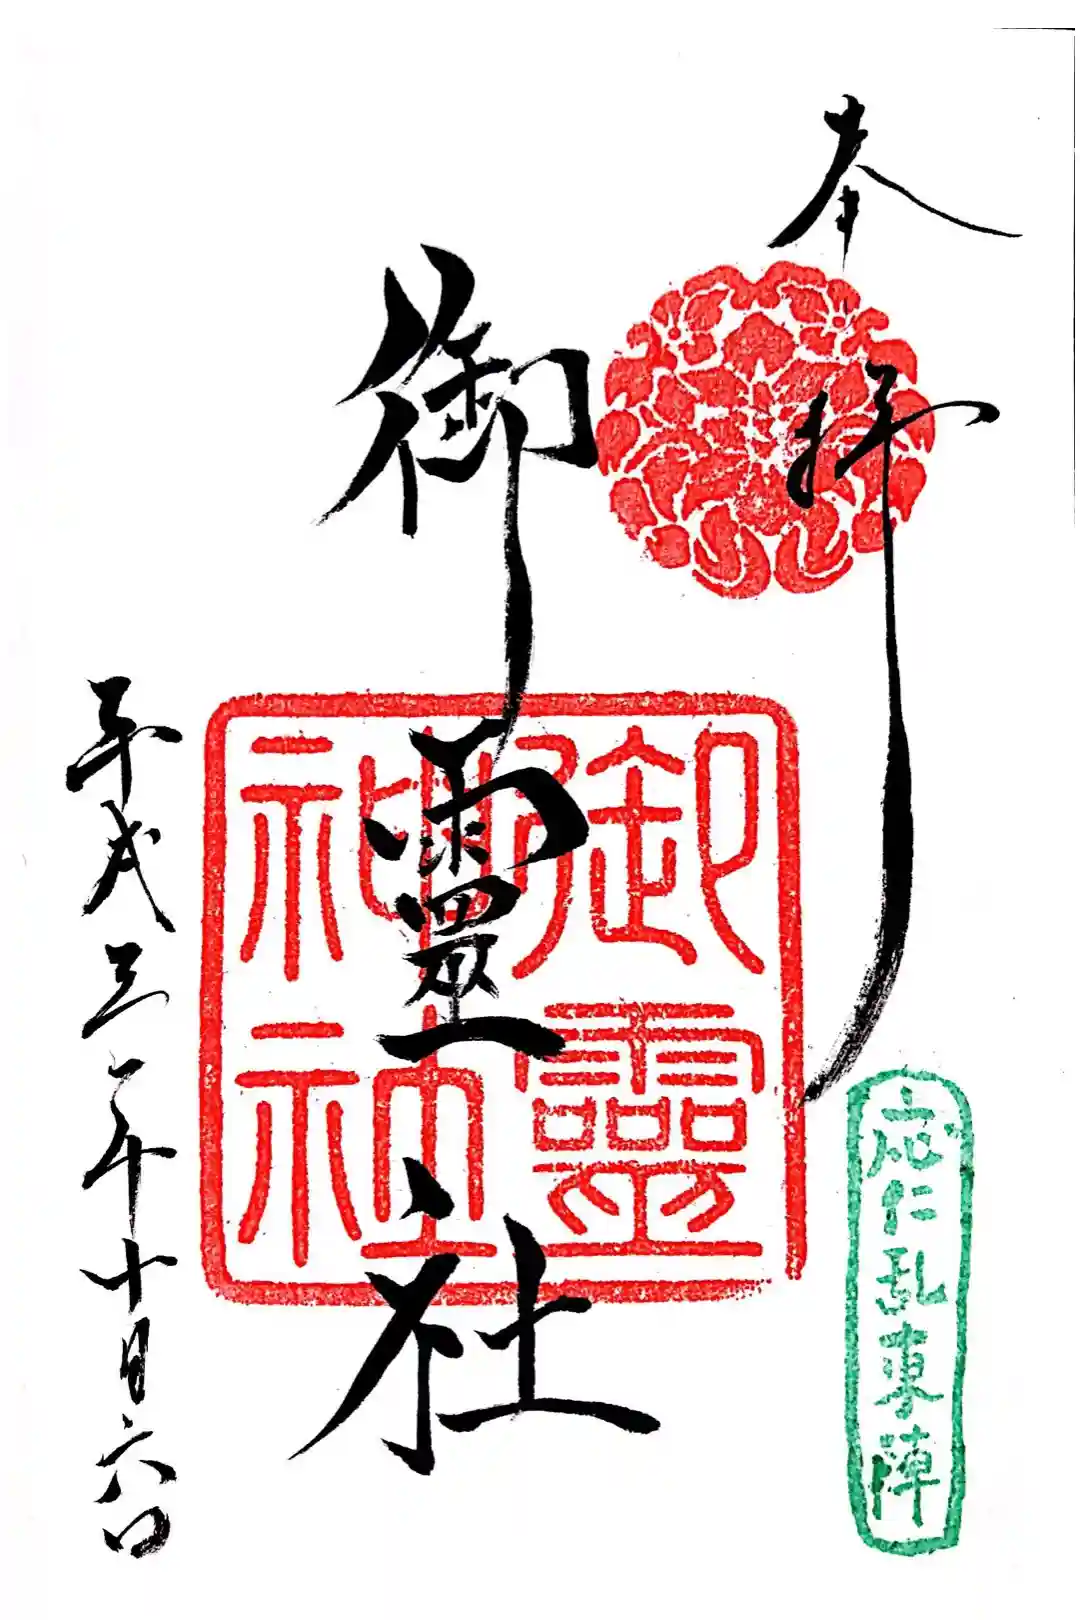 奉拝
応仁乱東陣
御靈社
御靈
神社
平成三年十月六日